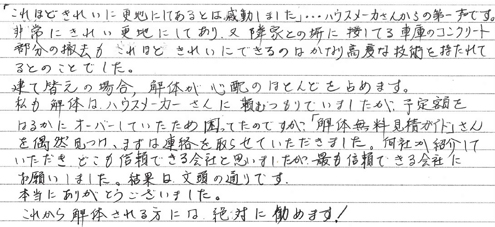 「これほどきれいに更地にしてあるとは感動しました」…ハウスメーカさんからの第一声です。
非常にきれい更地にしてあり、又隣家との堺に接してる車庫のコンクリート
部分の撤去もこれほどきれいにできるのはかなり高度な技術を持たれて
るとのことでした。
建て替えの場合、解体が心配のほとんどを占めます。
私も解体はハウスメーカーさんに頼むつもりでいましたが、予定額を
はるかにオーバーしていたため困ってたのですが、「解体無料見積ガイド」さん
を偶然見つけ、まずは連絡を取らせていただきました。何社か紹介して
いただき、どこも信頼できる会社と思いましたが最も信頼できる会社に
お願いしました。結果は文頭の通りです。
本当にありがとうございました。
これから解体される方には絶対に勧めます!